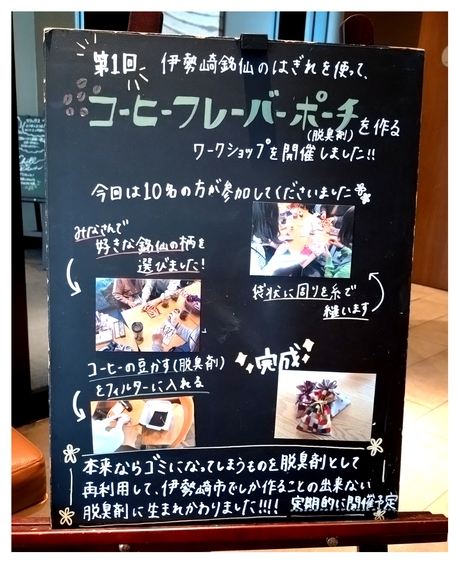 第1回 伊勢崎銘仙のはぎれを使って、
コーヒーフレーバーポーチを作る
(脱臭剤)
ワークショップを開催しました!!
今回は10名の方が参加してくださいました
みなさんで
好きな銘仙の柄を
選びました!
袋状に周りを糸で
縫います
コーヒーの豆かす(脱臭剤)
をフィルターに入れる
完成
本来ならゴミになってしまうものを脱臭剤として
再利用して、伊勢崎市でしか作ることの出来ない
脱臭剤に生まれかわりました!!!! 定期的に開催予定